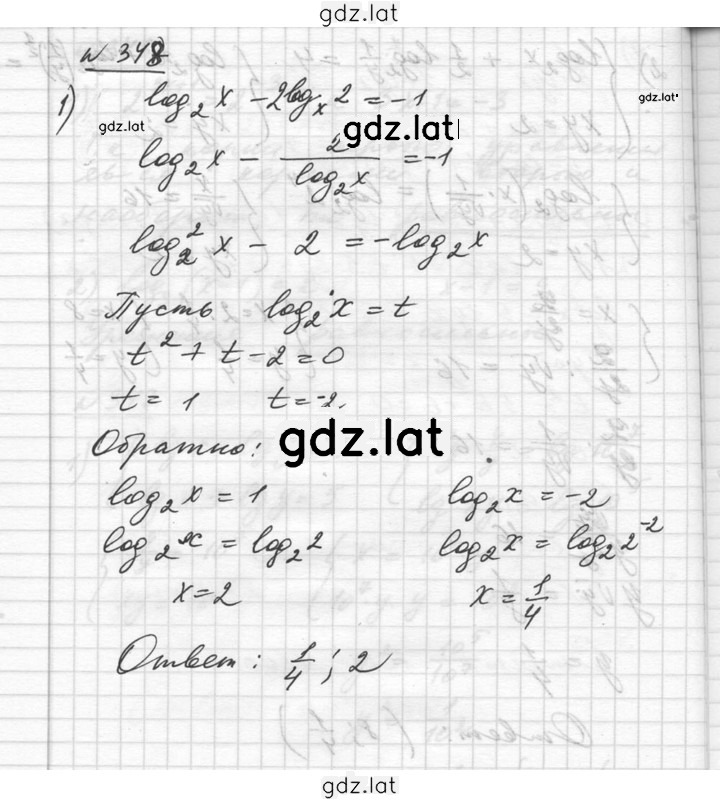 gdz.lat
№ 348
1) log₂ x − 2logₓ 2 = −1
gdz.lat
gdz.lat
gdz.lat
log₂ x − 2/log₂ x = −1
log₂² x − 2 = −log₂ x
Пусть log₂ x = t
t² + t − 2 = 0
t = 1 t = −2.
Обратно:
gdz.lat
log₂ x = 1 log₂ x = −2
log₂ x = log₂ 2 log₂ x = log₂ 2⁻²
x = 2 x = 1/4
Ответ: 1/4; 2
gdz.lat